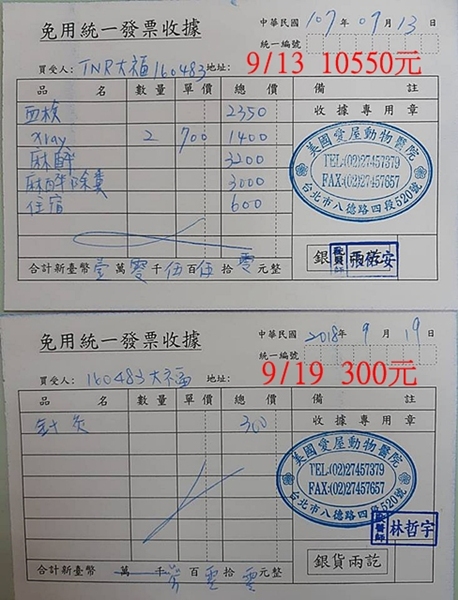 免用統一發票收據
中華民國 107年 09月 13日
統一編號
買受人：TNR大福160483 地址：
9/13 10550元
品名 數量 單價 總價 備註
血檢 2350 收據專用章
xray 2 700 1400
麻醉 3200
麻醉除糞 3000
住宿 600
美國愛屋動物醫院
TEL:(02)27457379
FAX:(02)27457657
台北市八德路四段520號
獸醫師 張祐安
合計新臺幣壹萬零千伍百伍拾零元整
免用統一發票收據
中華民國 2018年 9月 19日
統一編號
買受人：160483大福 地址：
9/19 300元
品名 數量 單價 總價 備註
針灸 300 收據專用章
美國愛屋動物醫院
TEL:(02)27457379
FAX:(02)27457657
台北市八德路四段520號
獸醫師 林哲宇
銀貨兩訖
合計新臺幣 萬 千 百零拾零元整